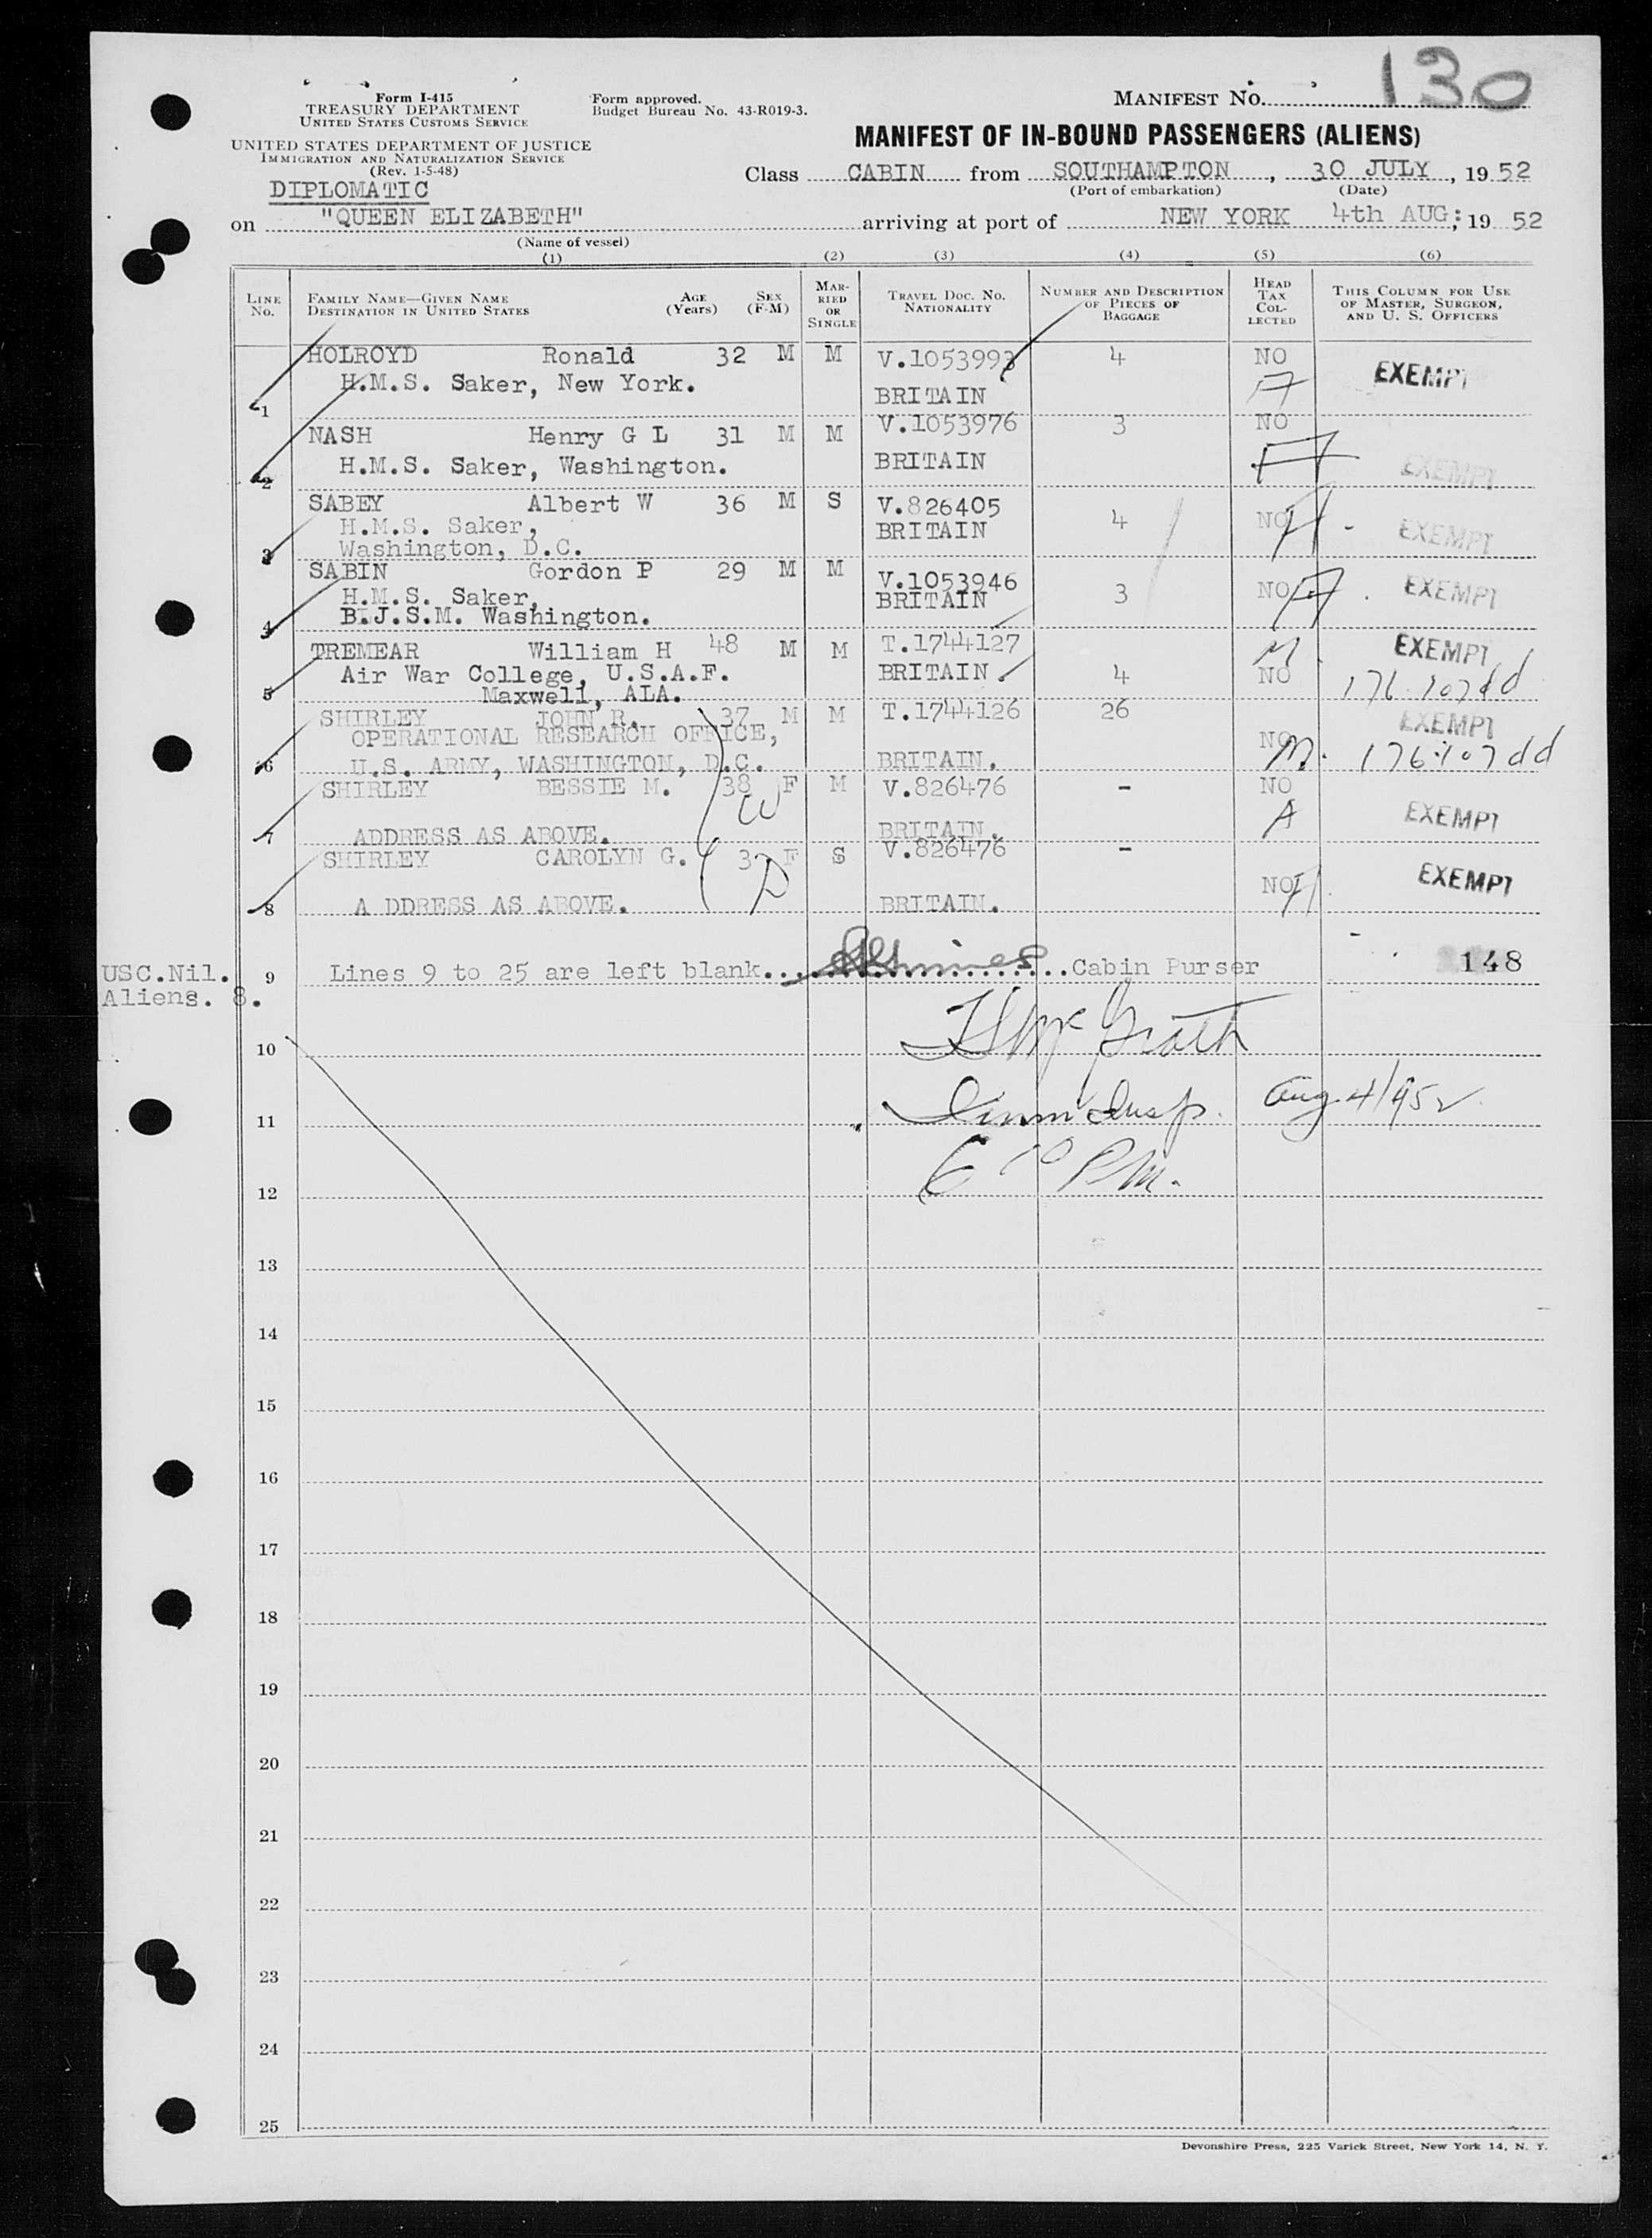 130
Form I-415
TREASURY DEPARTMENT
UNITED STATES CUSTOMS SERVICE
Form approved.
Budget Bureau No. 43-R019-3.
MANIFEST NO.
UNITED STATES DEPARTMENT OF JUSTICE
IMMIGRATION AND NATURALIZATION SERVICE
(Rev. 1-5-48)
MANIFEST OF IN-BOUND PASSENGERS (ALIENS)
DIPLOMATIC
Class CABIN from SOUTHAMPTON, 30 JULY, 19 52
(Port of embarkation) (Date)
on "QUEEN ELIZABETH" arriving at port of NEW YORK 4th AUG; 19 52
(Name of vessel)
(1) (2) (3) (4) (5) (6)
LINE NO.
FAMILY NAME—GIVEN NAME
DESTINATION IN UNITED STATES
AGE (Years)
SEX (F-M)
MAR-RIED OR SINGLE
TRAVEL DOC. NO. NATIONALITY
NUMBER AND DESCRIPTION OF PIECES OF BAGGAGE
HEAD TAX COL-LECTED
THIS COLUMN FOR USE OF MASTER, SURGEON, AND U. S. OFFICERS
HOLROYD Ronald 32 M M V.1053993 4 NO EXEMPT
H.M.S. Saker, New York.
1 BRITAIN
NASH Henry G L 31 M M V.1053976 3 NO
H.M.S. Saker, Washington. BRITAIN EXEMPT
2
SABEY Albert W 36 M S V.826405 4 NO EXEMPT
H.M.S. Saker, BRITAIN
3 Washington, D.C.
SABIN Gordon P 29 M M V.1053946 3 NO EXEMPT
H.M.S. Saker, BRITAIN
4 B.J.S.M. Washington.
TREMEAR William H 48 M M T.1744127 M. EXEMPT
Air War College, U.S.A.F. BRITAIN 4 NO 176.107dd
5 Maxwell, ALA.
SHIRLEY JOHN R. 37 M M T.1744126 26 EXEMPT
OPERATIONAL RESEARCH OFFICE, NO M. 176.107dd
6 U.S. ARMY, WASHINGTON, D.C. BRITAIN.
SHIRLEY BESSIE M. 38 F M V.826476 - NO
W A EXEMPT
7 ADDRESS AS ABOVE. BRITAIN.
SHIRLEY CAROLYN G. 3 F S V.826476 -
D NO EXEMPT
8 A DDRESS AS ABOVE. BRITAIN.
USC.Nil. 9 Lines 9 to 25 are left blank. Cabin Purser 148
Aliens. 8.
McGrath
10
Imm Insp. Aug 4/1952
11
6 10 PM.
12
13
14
15
16
17
18
19
20
21
22
23
24
25
Devonshire Press, 225 Varick Street, New York 14, N. Y.